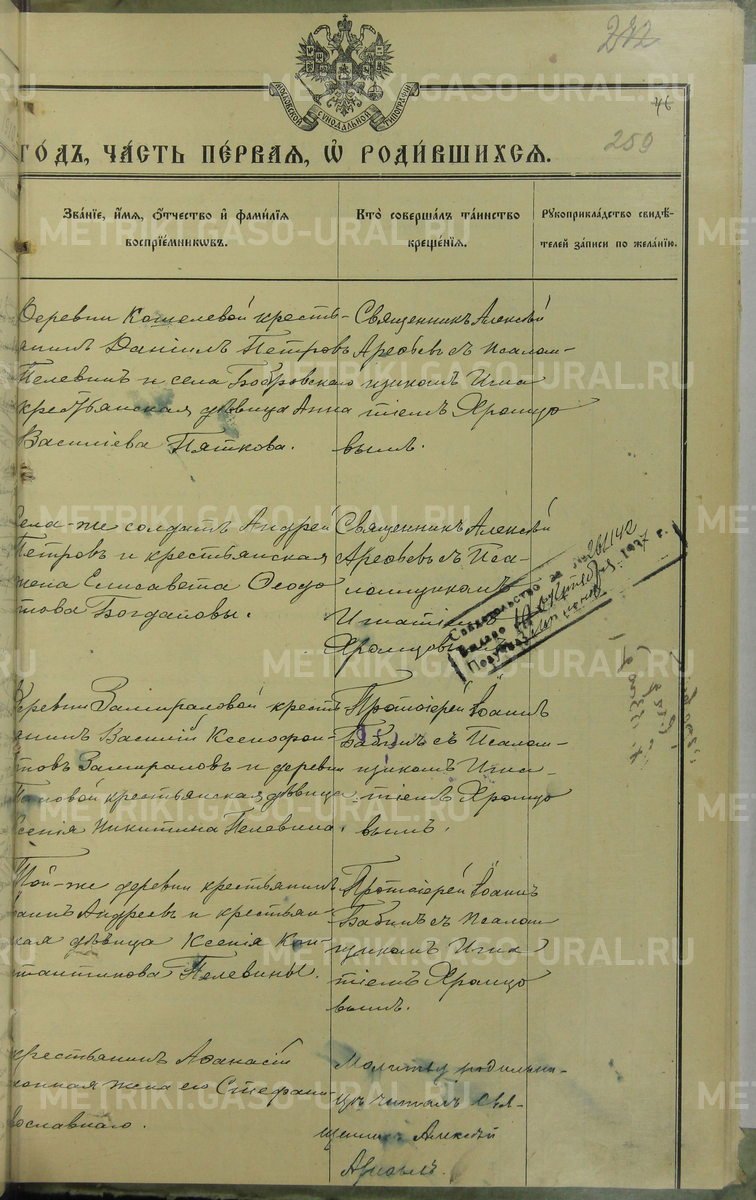 282
46
259
МОСКОВСКОЙ СѴНОДАЛЬНОЙ ТИПОГРАФІИ
ГО́ДЪ, ЧА́СТЬ ПЕ́РВАЯ, Ѡ҆ РОДИ́ВШИХСЯ.
Зва́нїе, и҆́мя, ѻ҆́тчество и҆ фами́лїя
воспрїе́мникѡвъ.
Кто̀ соверша́лъ та́инство
креще́нїя.
Рꙋкоприкла́дство свидѣ́-
телей за́писи по жела́нїю.
Деревни Кошелевой кресть-
янинъ Данiилъ Петровъ
Пелевинъ и села Бобровскаго
крестьянская дѣвица Анна
Василiева Пяткова.
Священникъ Алексѣй
Арефьевъ съ псалом-
щикомъ Игна
тiемъ Хромцо
вымъ.
Села-же солдатъ Андрей
Петровъ и крестьянская
жена Елисавета Ѳедо
това Богдановы.
Священникъ Алексѣй
Арефьевъ съ Пса-
ломщикомъ
Игнатiемъ
Хромцовымъ
Свидетельство за № 261142
Выдано
1937 г.
Деревни Замираловой кресть
янинъ Василiй Ксенофон
товъ Замираловъ и деревни
крестьянская дѣвица
Ксенiя Никитина Пелевина.
Протоiерей Iоаннъ
Бабинъ съ Псалом-
щикомъ Игна-
тiемъ Хромцо
вымъ.
Той-же деревни крестьянинъ
Андреевъ и крестьян-
ская дѣвица Ксенiя Кон-
стантинова Пелевины.
Протоiерей Iоаннъ
Бабинъ съ псалом
щикомъ Игна
тiемъ Хромцо
вымъ.
крестьянинъ Аѳанасiй
законная жена его Стефани
православнаго.
Молитву родильни-
цѣ читалъ Свя-
щенникъ Алексѣй
METRIKI.GASO-URAL.RU